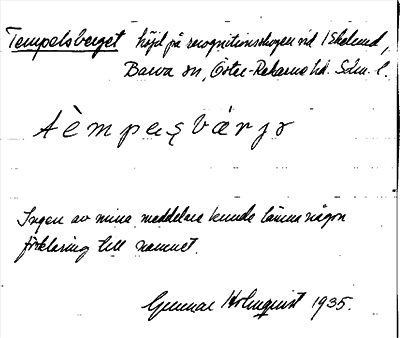 Tempelsberget höjd på recognitionsskogen vid Ekelund,
Barva sn, Öster-Rekarne hd. Sdm. l.
tèmpasvärjo
Ingen av mina meddelare kunde lämna någon
förklaring till namnet.
Gunnar Holmquist 1935.